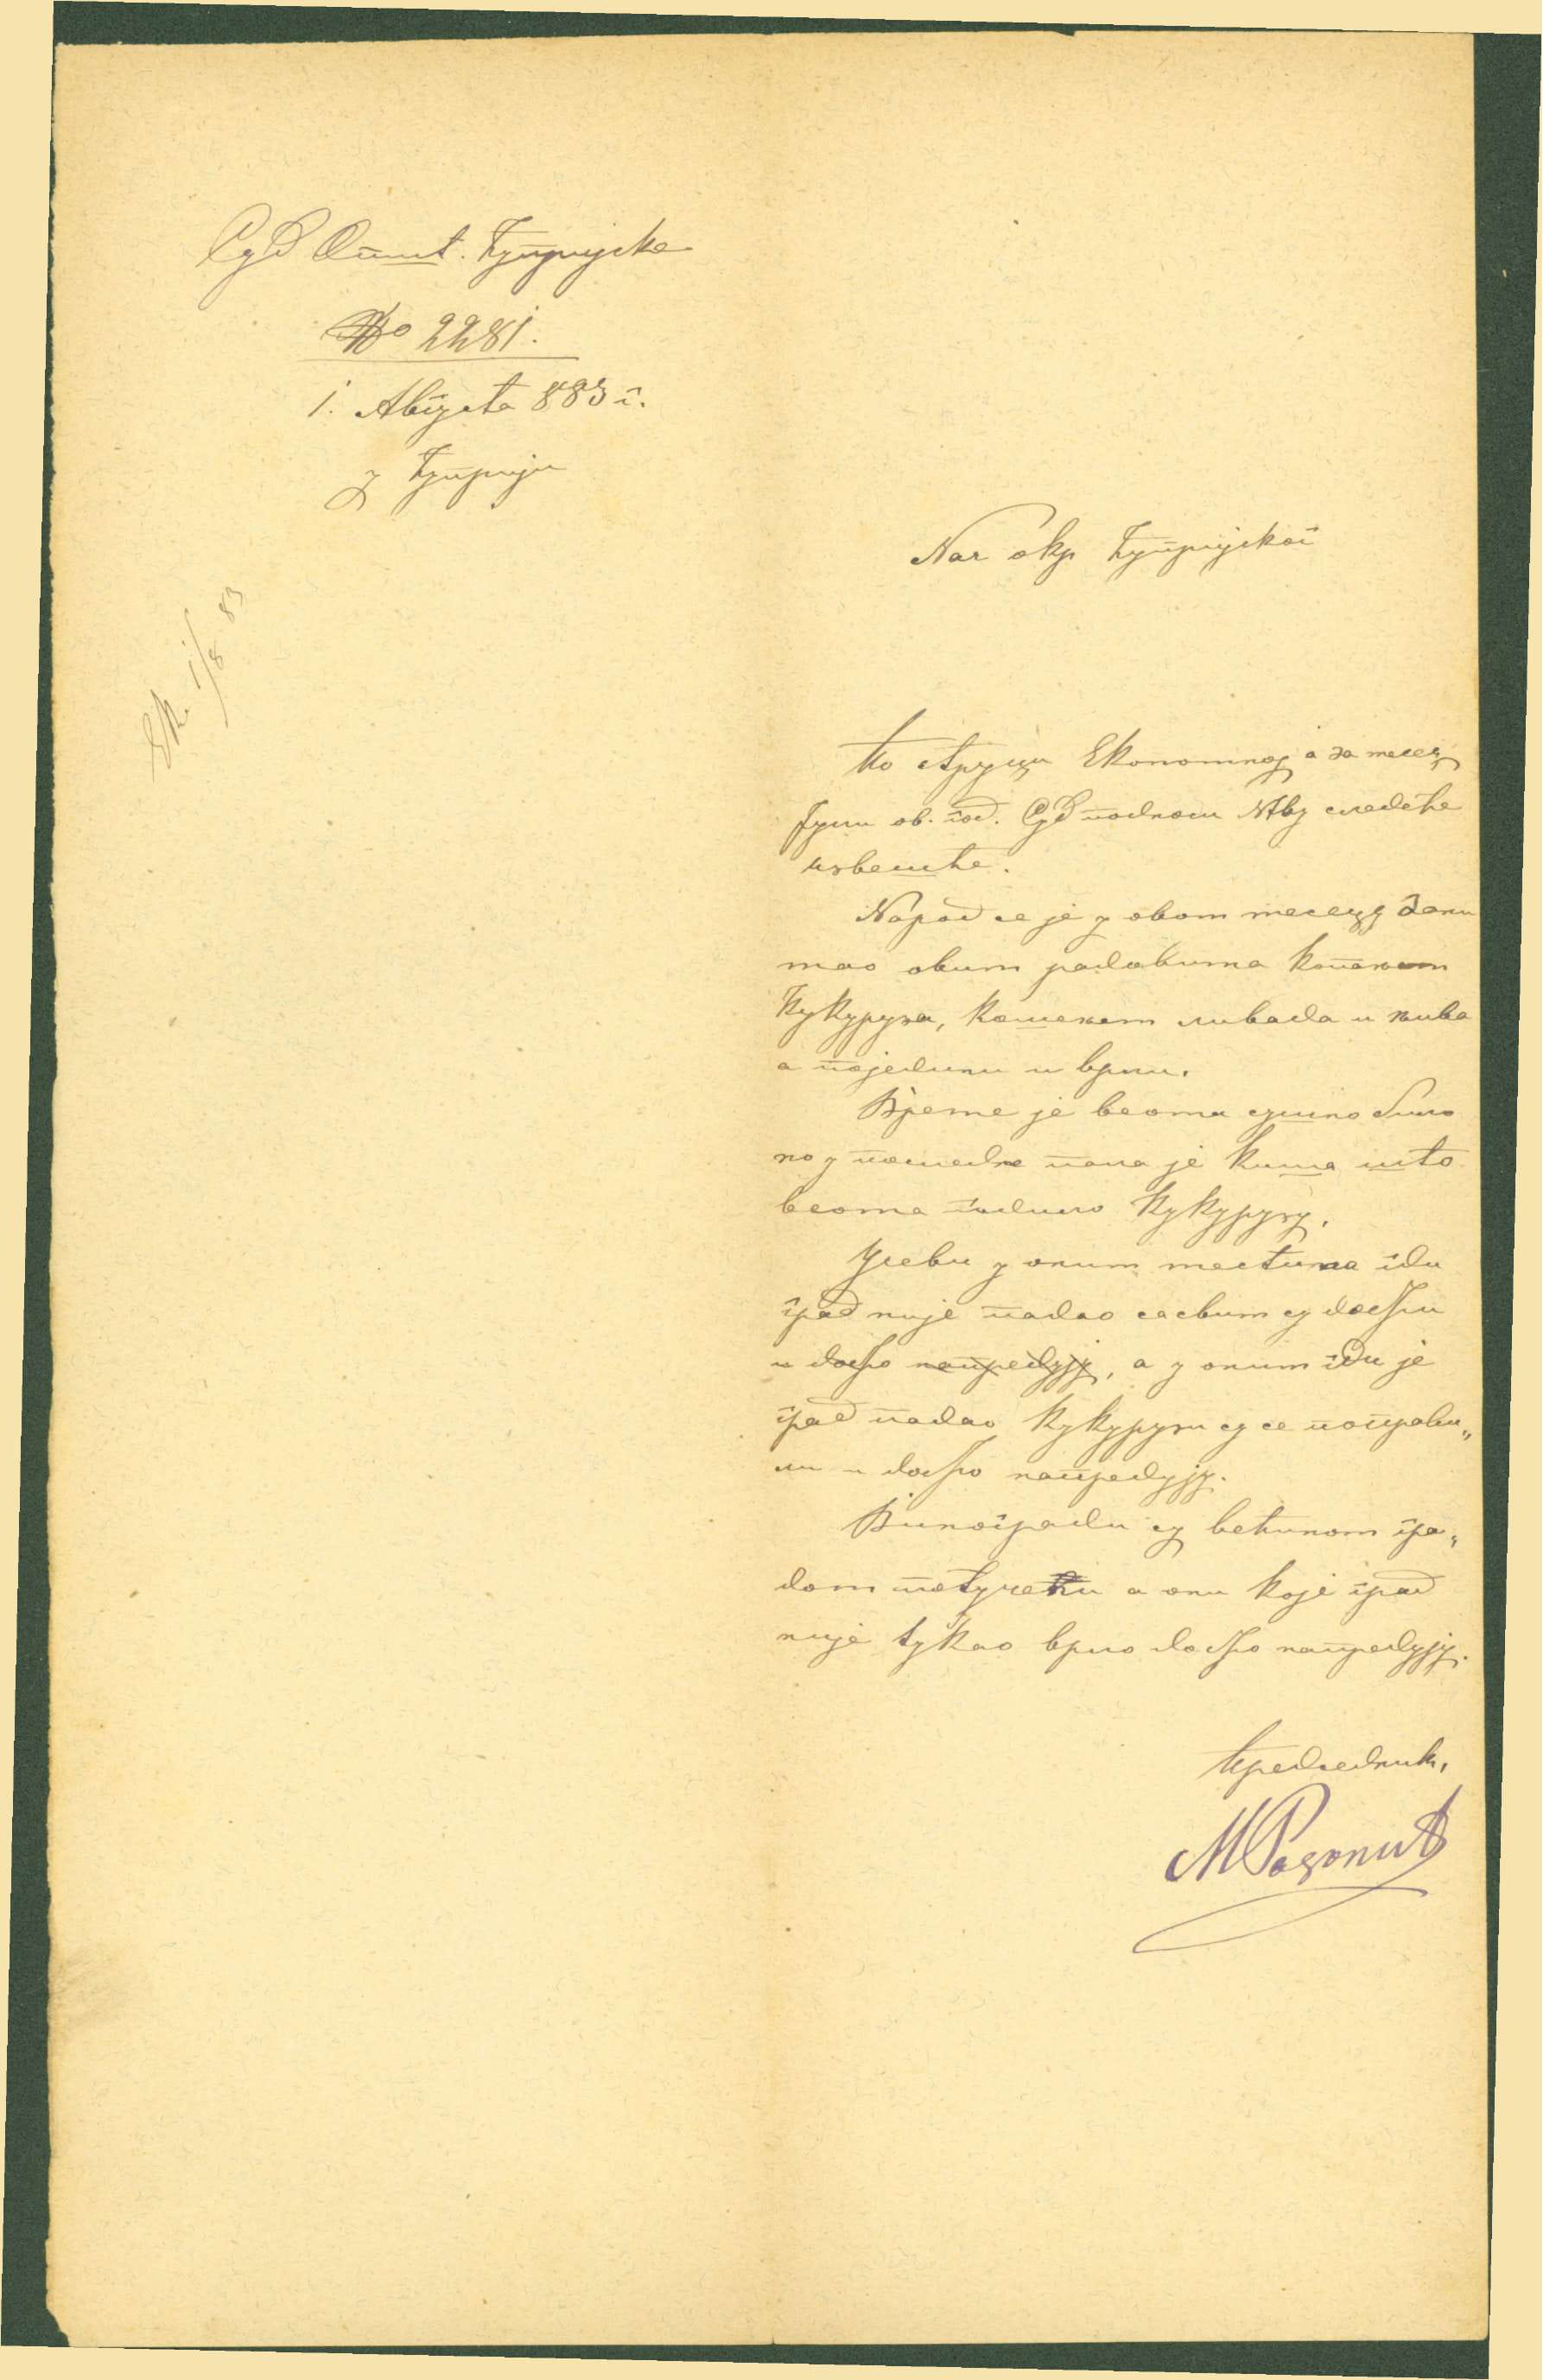 Суд Општ. Ћупријске
№ 2281.
1. Августа 883 г.
у Ћуприји
Нач окр Ћупријског
По струци Економној а за месец
Јули ов. год. Суд подноси Нтву следеће
извешће.
Народ се је у овом месецу зани
мао овим радовима копањем
Кукуруза, кошењем ливада и њива
а поједини и врши.
Време је веома сушно било
но у последње пала је киша што
веома годило Кукурузу.
Усеви у оним местима гди
град није падао сасвим су добри
и добро напредују, а у оним гди је
град падао Кукурузи су се поправи„
ли и добро напредују.
Виногради су већином гра„
дом потучени а они које град
није тукао врло добро напредују.
Председник,
М Радонић
Ек. 1/8 83